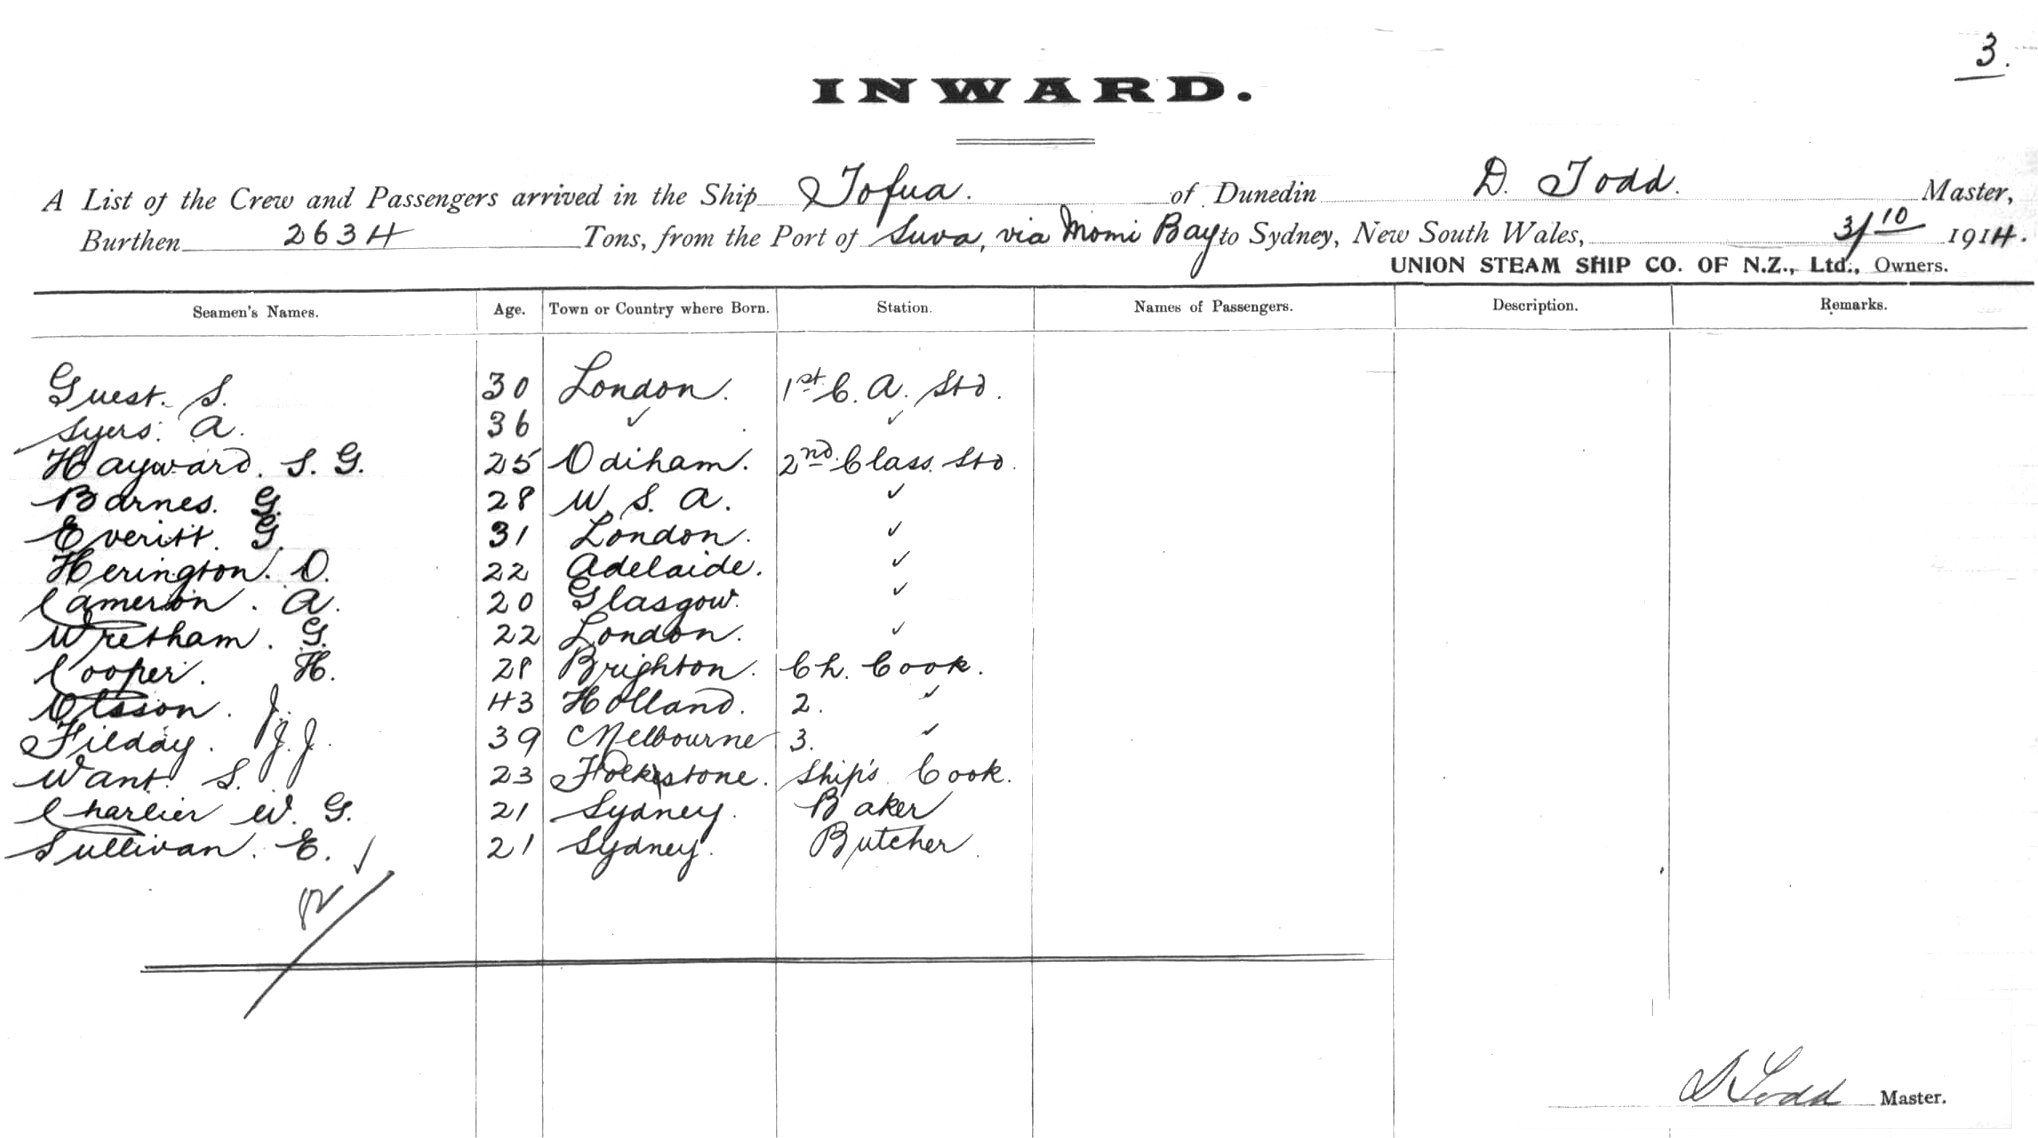 3.
INWARD.
A List of the Crew and Passengers arrived in the Ship Tofua. of Dunedin D. Todd. Master,
Burthen 2634 Tons, from the Port of Suva, via Momi Bay to Sydney, New South Wales, 3/10 1914.
UNION STEAM SHIP CO. OF N.Z., Ltd., Owners.
Seamen's Names. Age. Town or Country where Born. Station. Names of Passengers. Description. Remarks.
Guest. S. 30 London. 1st C. A. Std.
Syers. A. 36 ✓ ✓
Hayward. S. G. 25 Odiham. 2nd Class. Std.
Barnes. G. 28 U. S. A. ✓
Everitt. G. 31 London. ✓
Herington. O. 22 Adelaide. ✓
Cameron. A. 20 Glasgow. ✓
Wretham. G. 22 London. ✓
Cooper. H. 28 Brighton. Ch. Cook.
Olsson. J. 43 Holland. 2. ✓
Filday. J. J. 39 Melbourne 3. ✓
Want. S. 23 Folkestone. Ship's Cook.
Charlier W. G. 21 Sydney. Baker
Sullivan. E. ✓ 21 Sydney. Butcher.
D Todd Master.